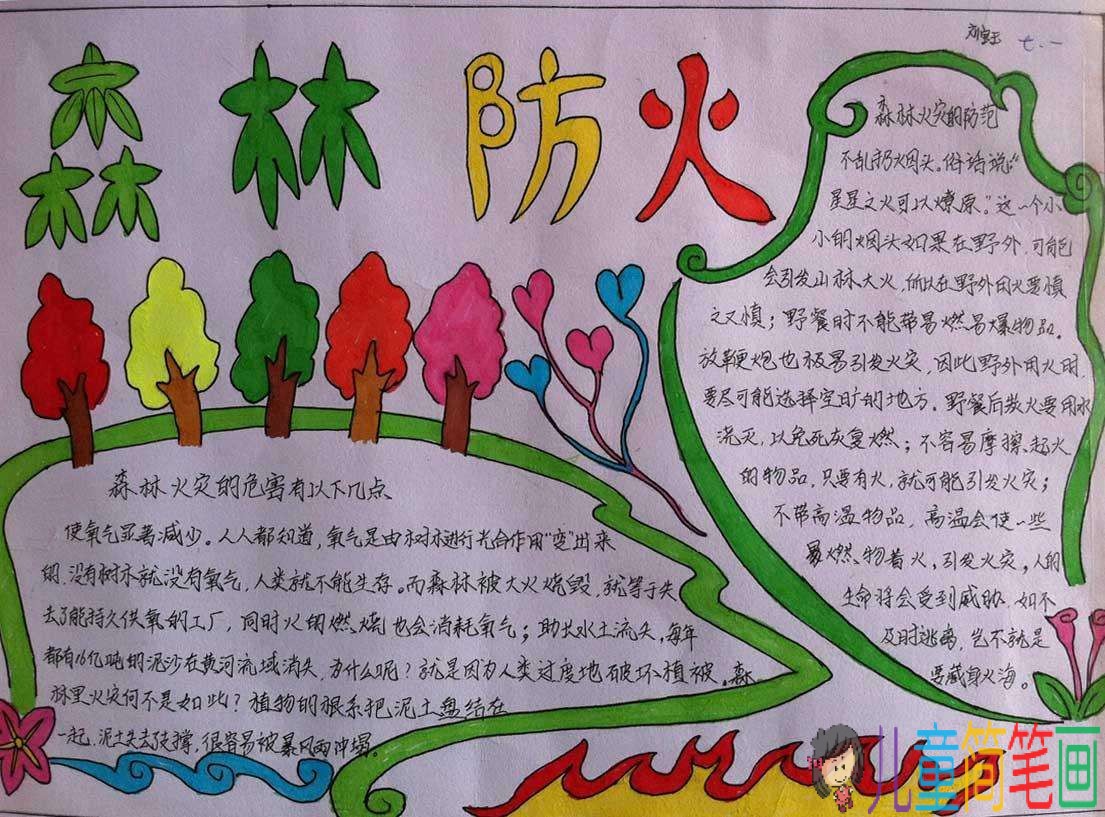 森林防火
七.一
森林火灾的防范
不乱扔烟头。俗话说“
星星之火可以燎原。”这一个小
小的烟头如果在野外,可能
会引发山林大火,所以在野外用火要慎
之又慎;野餐时不能带易燃易爆物品。
放鞭炮也极易引发火灾,因此野外用火时,
要尽可能选择空旷的地方。野餐后救火要用水
浇灭,以免死灰复燃;不容易摩擦起火
的物品,只要有火,就可能引发火灾;
不带高温物品,高温会使一些
易燃物着火,引发火灾,人的
生命将会受到威胁,如不
及时逃离,岂不就是
要藏身火海。
森林火灾的危害有以下几点
使氧气显著减少。人人都知道,氧气是由树木进行光合作用“变”出来
的,没有树木就没有氧气,人类就不能生存。而森林被大火烧毁,就等于失
去了能持久供氧的工厂,同时火的燃烧也会消耗氧气;助长水土流失,每年
都有16亿吨的泥沙在黄河流域消失,为什么呢?就是因为人类过度地破坏植被。森
林里火灾何不是如此?植物的根系把泥土盘结在
一起,泥土失去支撑,很容易被暴风雨冲塌。
儿童简笔画